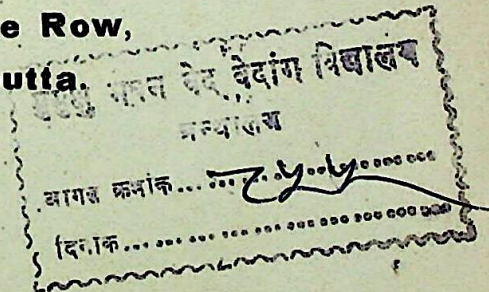 e Row,
utta.
मुमुक्षु भवन वेद वेदांग विद्यालय
ग्रन्थालय
आगत क्रमांक...............................
दिनांक.......................................